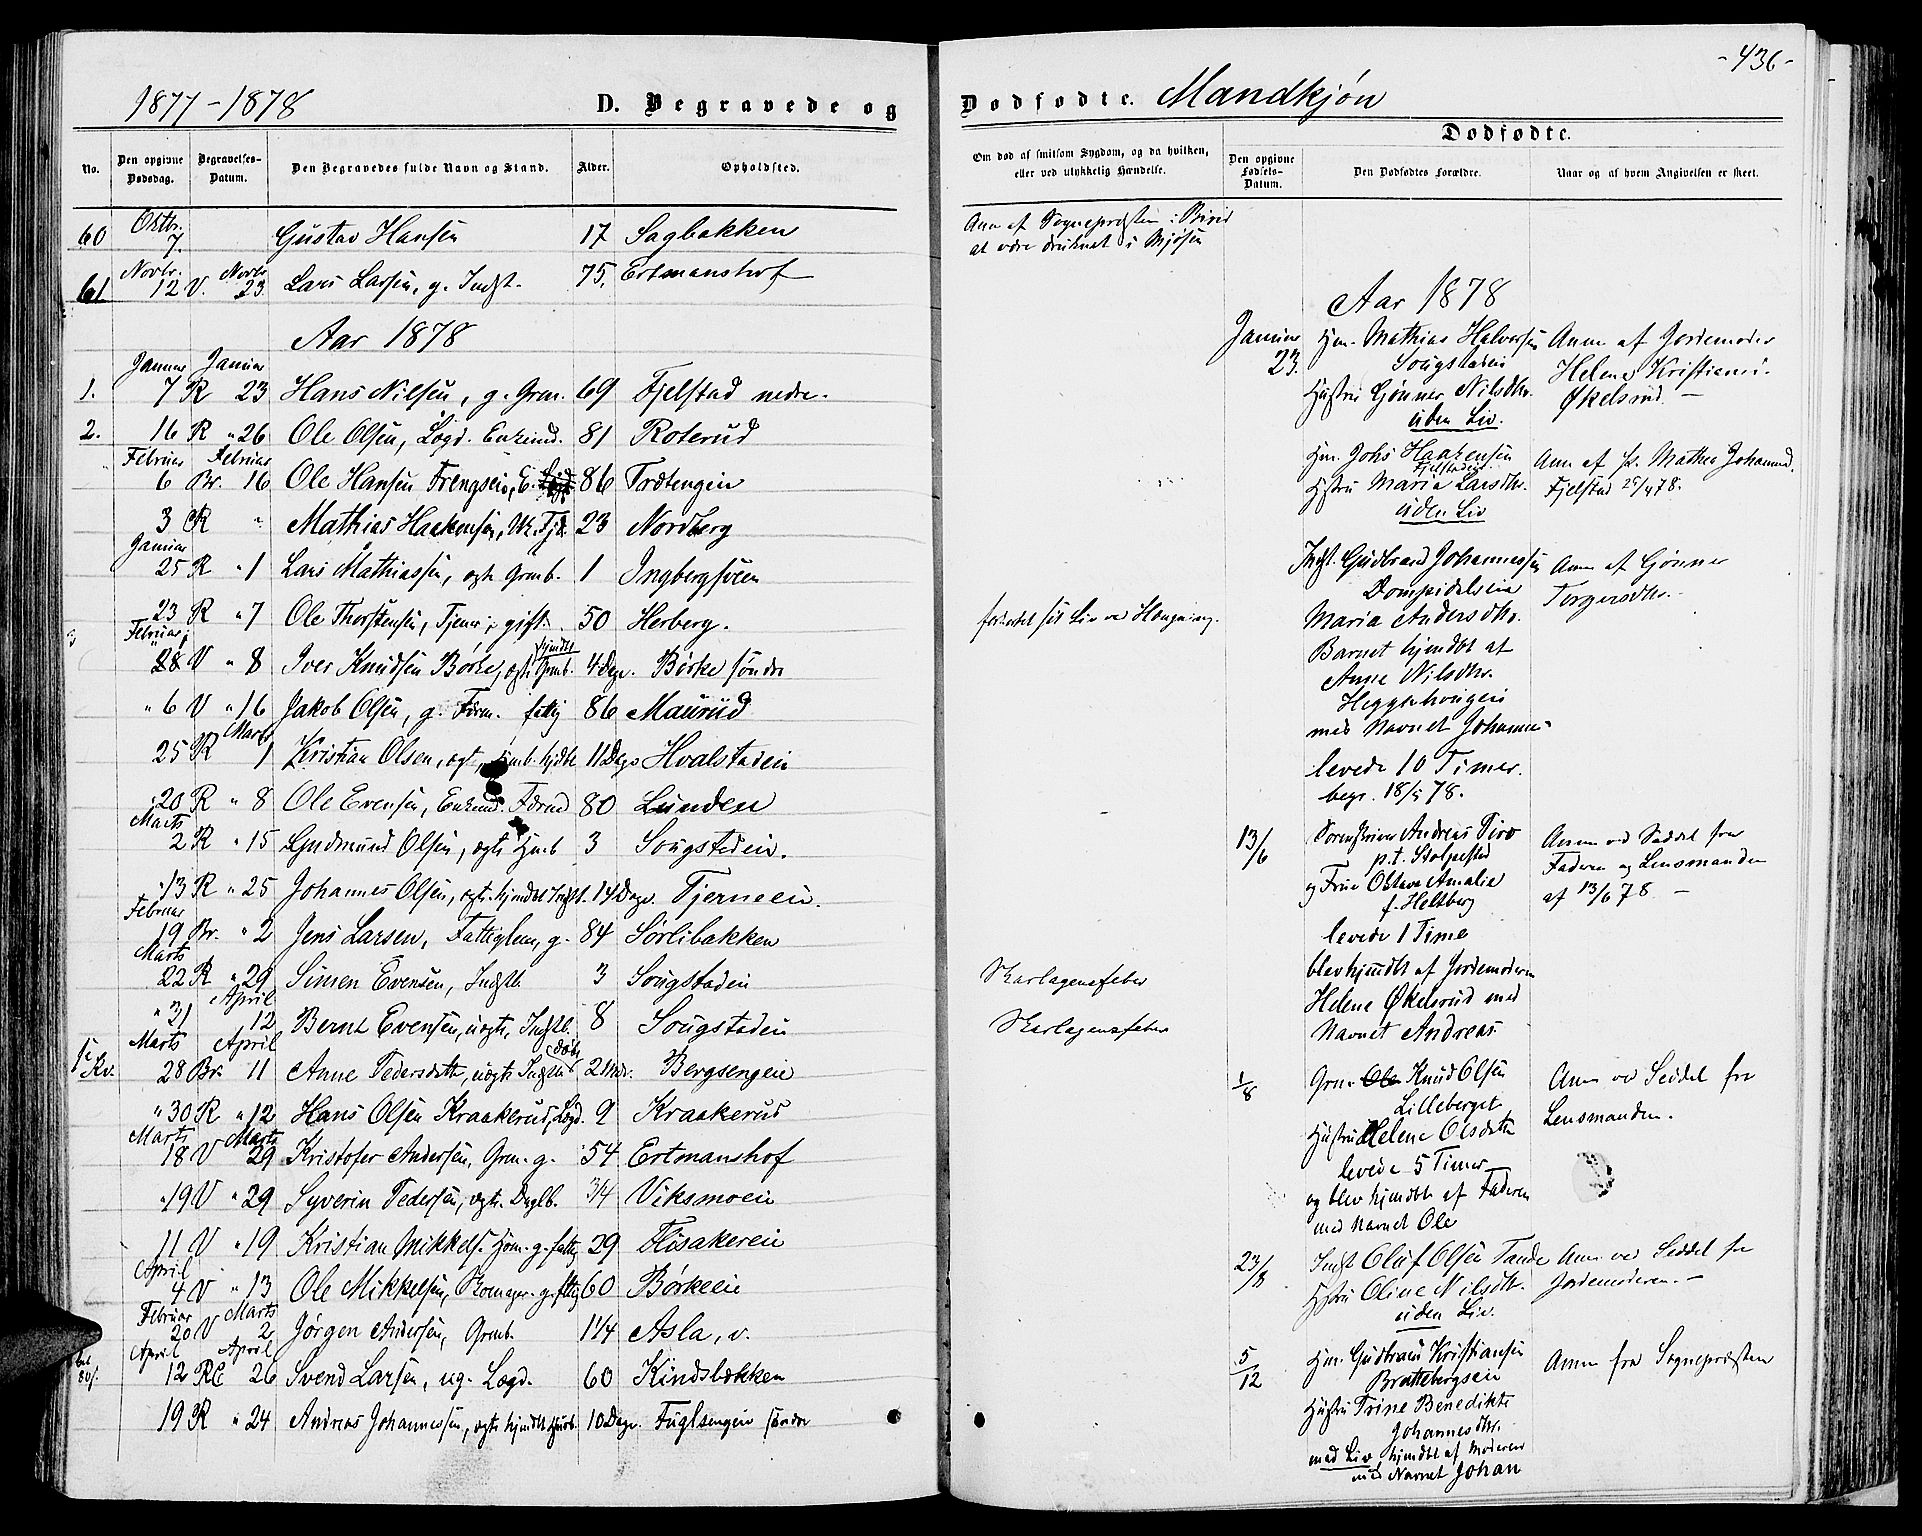 1877-1878
D. Begravede og
No.
Den opgivne Dødsdag.
Begravelses-Datum.
Den Begravedes fulde Navn og Stand.
Alder.
Opholdsted.
60 Oktbr. 7. Gustav Hansen 17 Sagbakken
61 Novbr. 12 V. Novbr 23 Lars Larsen, g. Indst. 75. Ertmanshof
Aar 1878
1. Januar 7 R Januar 23 Hans Nilsen, g. Grm. 69 Fjelstad nedre.
2. 16 R " 26 Ole Olsen, Løgd. Enkemd. 81 Roterud
Februar 6 Br. Februar 16 Ole Hansen Frengseie, E. 86 Trotengen
3 R " Mathias Haakensen, Uk. Tj. 23 Nordberg
Januar 25 R " 1 Lars Mathiassen, ægte Grmb. 1 Ingbergsveen
23 R " 7 Ole Thorstensen, Tjener, gift. 50 Herberg.
Februar 28 V " 8 Iver Knudsen Børke, ægte hjmdbt Grmb. 4 Dage. Børke søndre
" 6 V " 16 Jakob Olsen, g. Form. fattig 86 Maurud
25 R Marts 1 Kristian Olsen, ægt, hjdbt 11 Dage Hvalstadeie
20 R " 8 Ole Evensen, Enkemd. 80 Lunden
Marts 2 R " 15 Gudmund Olsen, ægte Hmb 3 Sougstadeie.
13 R " 25 Johannes Olsen, ægte hjmdbt Indst. 14 Dage. Tjerneeie.
Februar 19 Br. " 2 Jens Larsen, Fattiglem, g. 84 Sørlibakken
Marts 22 R " 29 Simen Evensen, Indstb 3 Sougstadeie
" 31 April 12 Bernt Evensen, uægte, Indstb. 8 Sougstadeie
Kv. Marts 28 Br. April 11 Anne Pedersdatter, uægte Indstb døbt 2 Mdr. Bergsengeie
" 30 R " 12 Hans Olsen Kraakerud, Lægd. 9 Kraakerud
Marts 18 V Marts 29 Kristofer Andersen, Grm. g. 54 Ertmanshof
" 19 V " 29 Syverin Pedersen, ægte. Daglb. 3/4 Viksmoeie
11 V " 19 Kristian Mikkels. Hom. g. fattig 29 Flisakereie
April 4 V " 13 Ole Mikkelsen, Skomager. g. fattig 60 Børkeeie
Februar 20 V Marts 2 Jørgen Andersen, Grmb. 1 1/4 Asla, v.
April 12 R April 26 Svend Larsen, ug. Lægd. 60 Kindslækken
19 R " 24 Andreas Johannessen, ægte hjmdbt Hmb. 10 Dage. Fuglsengeie søndre
-436-
Dødfødte. Mandkjøn
Om død af smitsom Sygdom, og da hvilken,
eller ved ulykkelig Hændelse.
Dødfødte.
Den opgivne Fødsels-Datum.
Den Dødfødtes Forældre.
Naar og af hvem Angivelsen er skeet.
Anm af Sognepræsten i Birid
at være druknet i Mjøsen
forkortet sit Liv ved Hængning.
Skarlagensfeber
Skarlagensfeber
Aar 1878
Januar 23. Hm. Mathias Halvorsen
Sougstadeie
Hustru Gjønner Nilsdtr.
uden Liv.
Anm af Jordemoder
Helene Kristians.
Økelsrud. —
Hm. Johs Haakensen
Fjelstadeie
Hstru Maria Larsdtr.
uden Liv
Anm af Mathea Johansd.
Fjelstad 25/4 78.
Indst. Gudbrand Johannessen
Dompidaleie
Maria Andersdtr.
Barnet hjmdbt af
Anne Nilsdtr.
med Navnet Johannes
levede 10 Timer.
begr. 18/5 78.
Anm af Gjønner
Torgersdtr. —
13/6 Sorenskriver Andreas Tero
p.t. Stolpestad
og Frue Oktava Amalia
f. Heltberg
levede 1 Time
blev hjmdbt af Jordemoderen
Helene Økelsrud med
Navnet Andreas
Anm ved Seddel fra
Faderen og Lensmanden
af 13/6 78 —
1/8 Grm. Ole Knud Olsen
Lilleberget
Hustru Helene Olsdatter
levede 5 Timer
og blev hjmdbt af Faderen
med Navnet Ole
Anm ved Seddel fra
Lensmanden.
23/8 Indst Oluf Olsen Tande
Hstru Oline Nilsdtr.
uden Liv.
Anm ved Seddel fra
Jordemoderen. —
5/12 Hm. Gudbrand Kristiansen
Brattebergseie
Hustru Trine Benedikte
Johannesdtr.
med Liv hjmdbt af Moderen
med Navnet Johan
Anm fra Sognepræsten